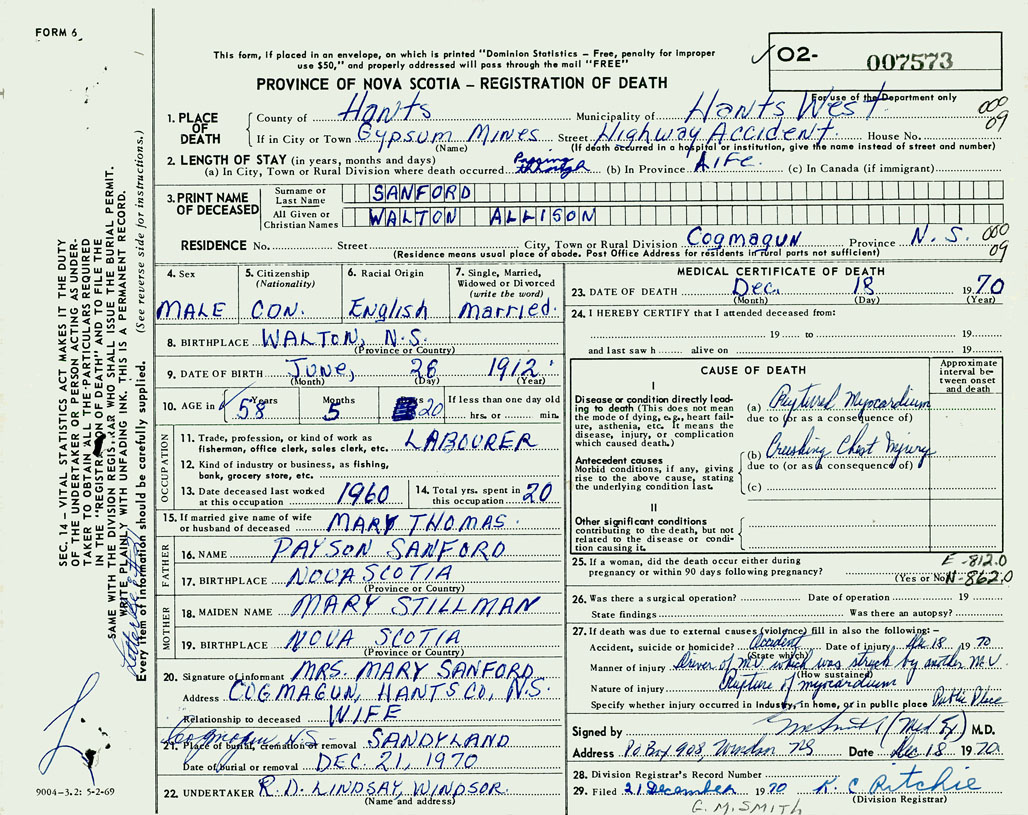 FORM 6
This form, if placed in an envelope, on which is printed "Dominion Statistics – Free, penalty for improper
use $50," and properly addressed will pass through the mail "FREE"
PROVINCE OF NOVA SCOTIA – REGISTRATION OF DEATH
02- 007573
For use of the Department only
000
09
1. PLACE OF DEATH
County of Hants Municipality of Hants West
If in City or Town Gypsum Mines Street Highway Accident House No.
(Name) (If death occurred in a hospital or institution, give the name instead of street and number)
2. LENGTH OF STAY (in years, months and days)
(a) In City, Town or Rural Division where death occurred Passing through (b) In Province Life. (c) In Canada (if immigrant)
3. PRINT NAME OF DECEASED
Surname or Last Name SANFORD
All Given or Christian Names WALTON ALLISON
RESIDENCE No. Street City, Town or Rural Division Cogmagun Province N.S. 000
09
(Residence means usual place of abode. Post Office Address for residents in rural parts not sufficient)
4. Sex
MALE
5. Citizenship
(Nationality)
CON.
6. Racial Origin
English
7. Single, Married,
Widowed or Divorced
(write the word)
Married.
8. BIRTHPLACE WALTON, N.S.
(Province or Country)
9. DATE OF BIRTH JUNE, 26 1912
(Month) (Day) (Year)
10. AGE in Years 58 Months 5 20 If less than one day old
hrs. or min.
OCCUPATION
11. Trade, profession, or kind of work as
fisherman, office clerk, sales clerk, etc. LABOURER
12. Kind of industry or business, as fishing,
bank, grocery store, etc.
13. Date deceased last worked
at this occupation 1960
14. Total yrs. spent in
this occupation 20
15. If married give name of wife
or husband of deceased MARY THOMAS.
FATHER
16. NAME PAYSON SANFORD
17. BIRTHPLACE NOVA SCOTIA
(Province or Country)
MOTHER
18. MAIDEN NAME MARY STILLMAN
19. BIRTHPLACE NOVA SCOTIA
(Province or Country)
20. Signature of informant MRS. MARY SANFORD
Address COGMAGUN, HANTS CO, N.S.
Relationship to deceased WIFE
Cogmagun N.S.
21. Place of burial, cremation or removal SANDYLAND
Date of burial or removal DEC. 21, 1970
22. UNDERTAKER R.D. LINDSAY, WINDSOR.
(Name and address)
MEDICAL CERTIFICATE OF DEATH
23. DATE OF DEATH Dec. 18 1970
(Month) (Day) (Year)
24. I HEREBY CERTIFY that I attended deceased from:
19 to 19
and last saw h alive on 19
CAUSE OF DEATH
Approximate
interval be-
tween onset
and death
I
Disease or condition directly lead-
ing to death (This does not mean
the mode of dying, e.g., heart fail-
ure, asthenia, etc. It means the
disease, injury, or complication
which caused death.)
(a) Ruptured Myocardium
due to (or as a consequence of)
Antecedent causes
Morbid conditions, if any, giving
rise to the above cause, stating
the underlying condition last.
(b) Crushing Chest Injury
due to (or as a consequence of)
(c)
II
Other significant conditions
contributing to the death, but not
related to the disease or condi-
tion causing it.
25. If a woman, did the death occur either during
pregnancy or within 90 days following pregnancy?
(Yes or No)
E-812.0
N-862.0
26. Was there a surgical operation? Date of operation 19
State findings Was there an autopsy?
27. If death was due to external causes (violence) fill in also the following:–
Accident, suicide or homicide? Accident Date of injury Dec 18 1970
(State which)
Manner of injury Driver of M.V. which was struck by another M.V.
(How sustained)
Nature of injury Rupture of myocardium
Specify whether injury occurred in industry, in home, or in public place Public Place
Signed by (Med Ex) M.D.
Address P.O Box 908, Windsor NS Date Dec 18 1970
28. Division Registrar's Record Number
29. Filed 21 December 1970 K. C Ritchie
(Division Registrar)
G. M. SMITH
SEC. 14 – VITAL STATISTICS ACT MAKES IT THE DUTY
OF THE UNDERTAKER OR PERSON ACTING AS UNDER-
TAKER TO OBTAIN ALL THE PARTICULARS REQUIRED
IN THE "REGISTRATION OF DEATH" AND TO FILE THE
SAME WITH THE DIVISION REGISTRAR WHO SHALL ISSUE THE BURIAL PERMIT.
WRITE PLAINLY WITH UNFADING INK. THIS IS A PERMANENT RECORD.
Every item of information should be carefully supplied. (See reverse side for instructions.)
9004-3.2: 5-2-69